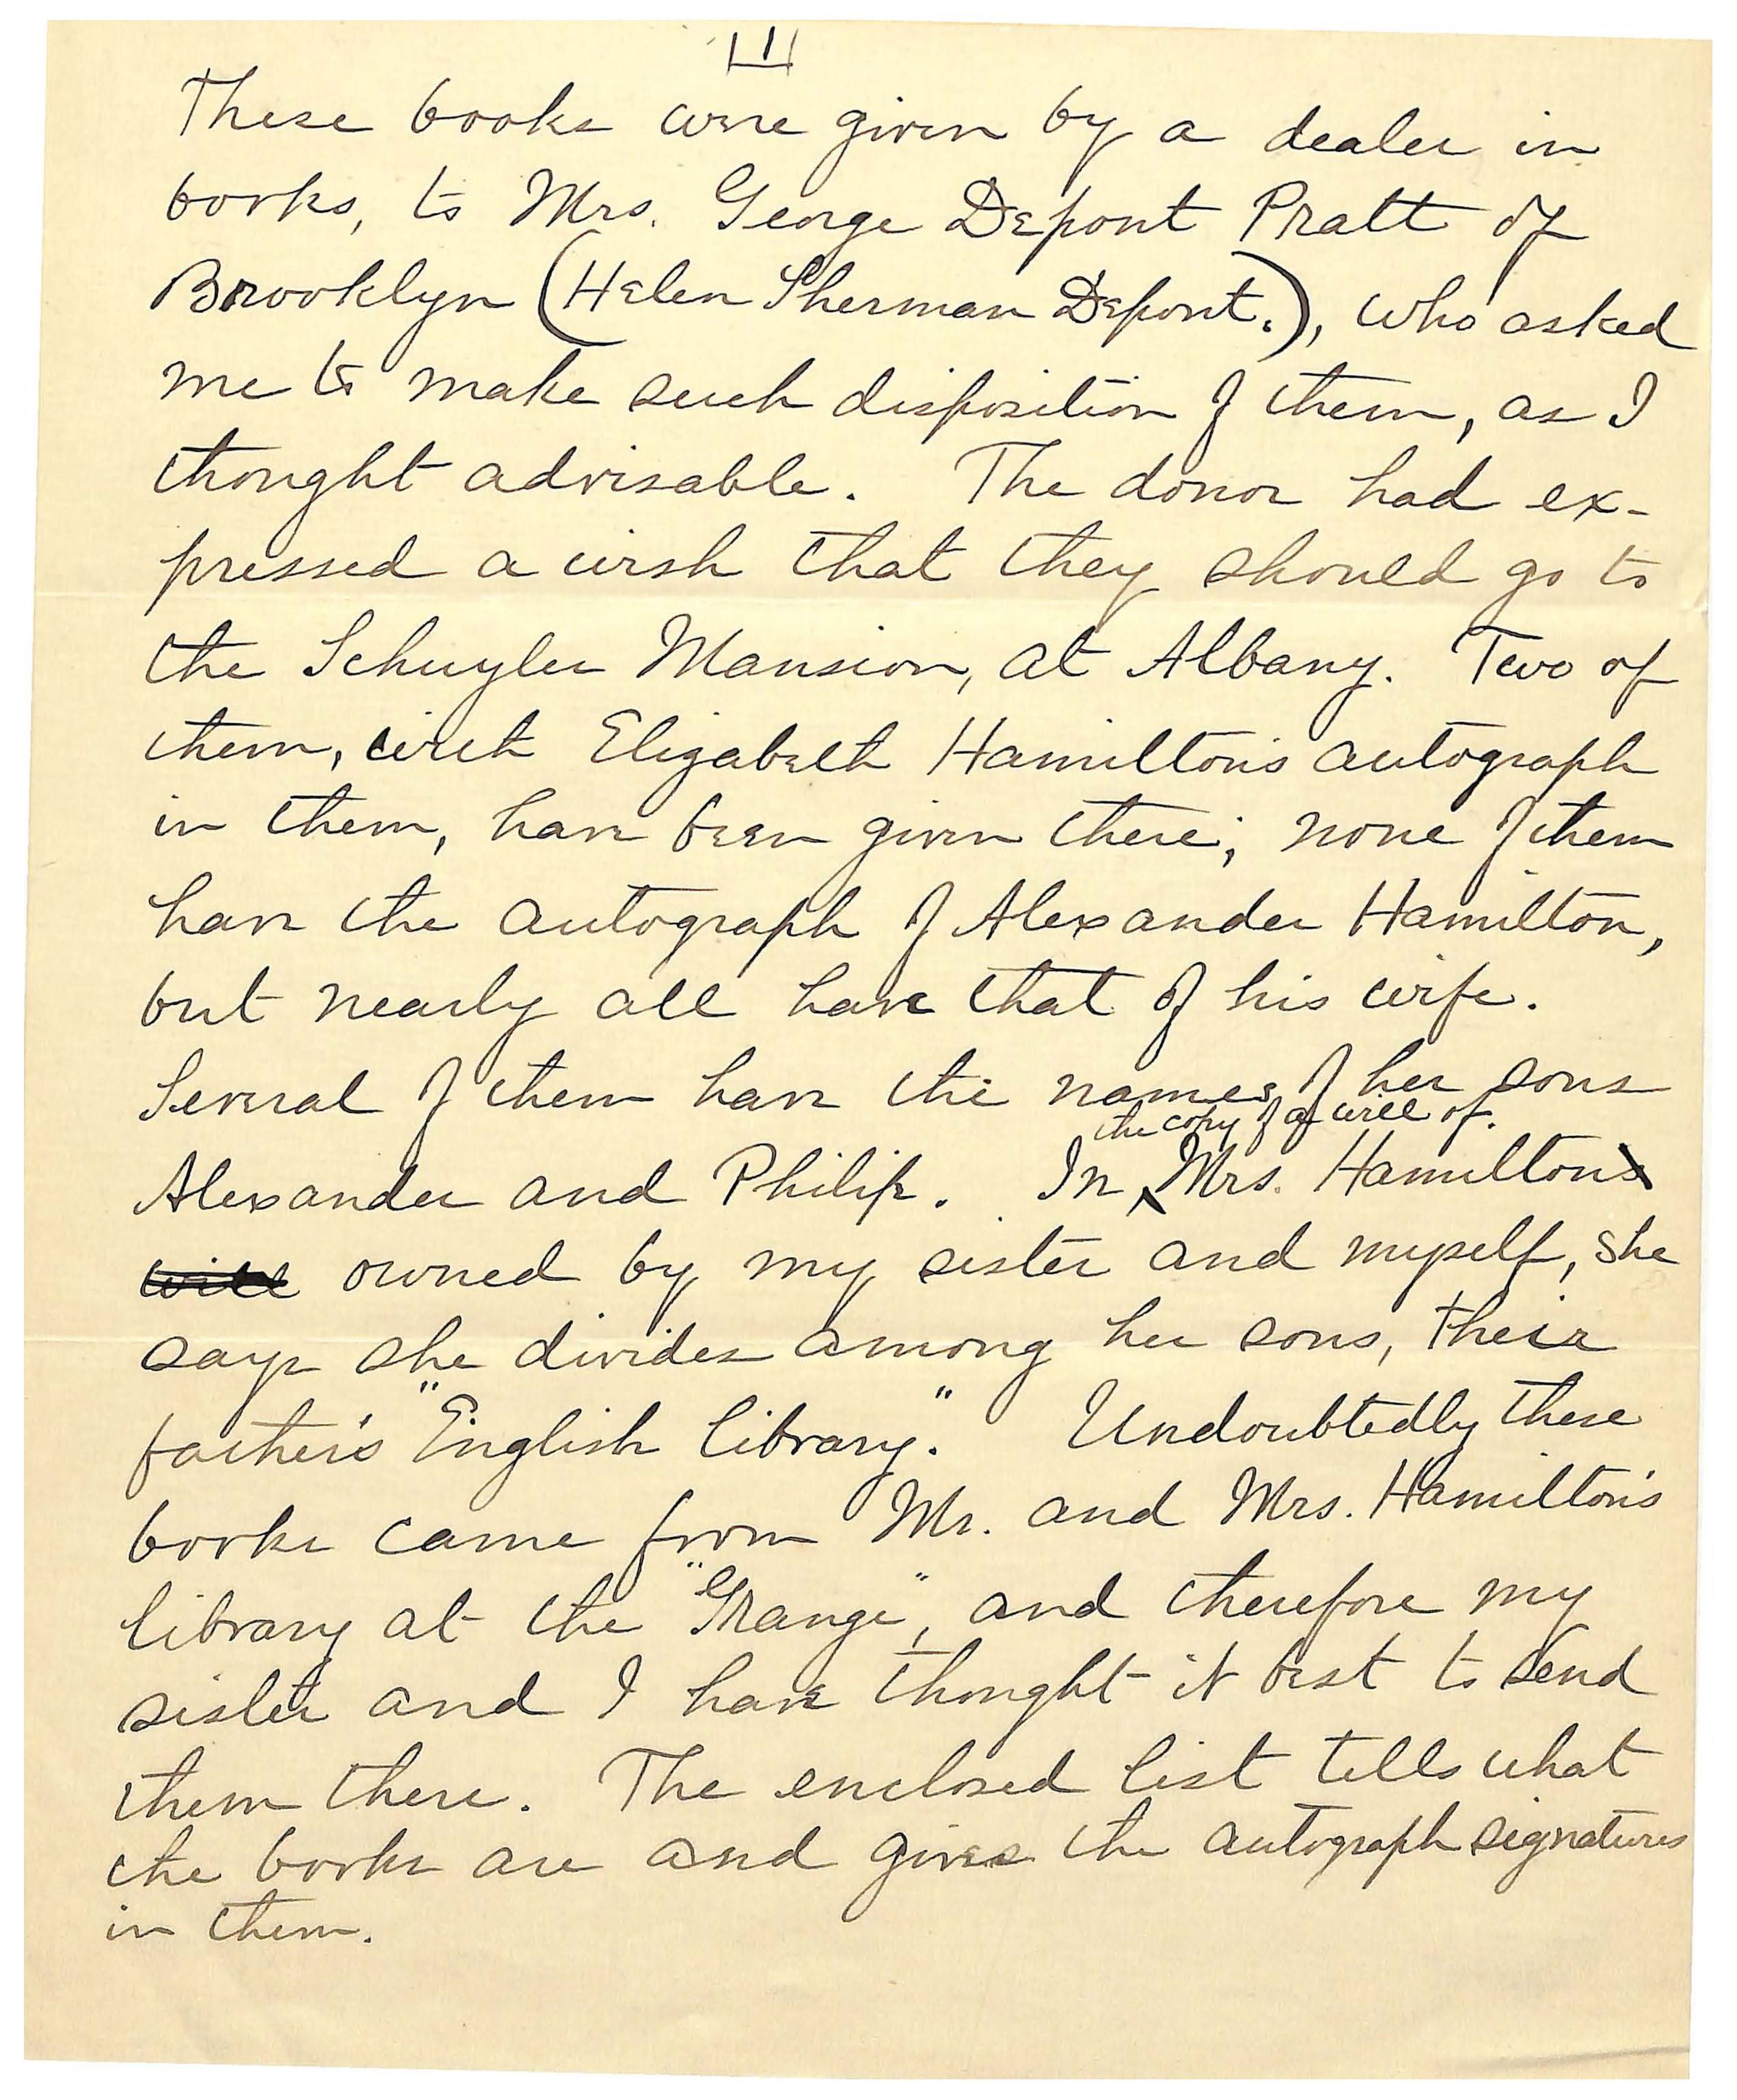 1
These books were given by a dealer in
books, to Mrs. George Depont Pratt of
Brooklyn (Helen Sherman Depont.), who asked
me to make such disposition of them, as I
thought advisable. The donor had ex-
pressed a wish that they should go to
the Schuyler Mansion, at Albany. Two of
them, with Elizabeth Hamilton's autograph
in them, have been given there; none of them
have the autograph of Alexander Hamilton,
but nearly all have that of his wife.
Several of them have the names of her sons
the copy of a will of
Alexander and Philip. In Mrs. Hamiltons
will owned by my sister and myself, she
says she divides among her sons, their
father's "English library." Undoubtedly these
books came from Mr. and Mrs. Hamilton's
library at the "Grange", and therefore my
sister and I have thought it best to send
them there. The enclosed list tells what
the books are and gives the autograph signatures
in them.